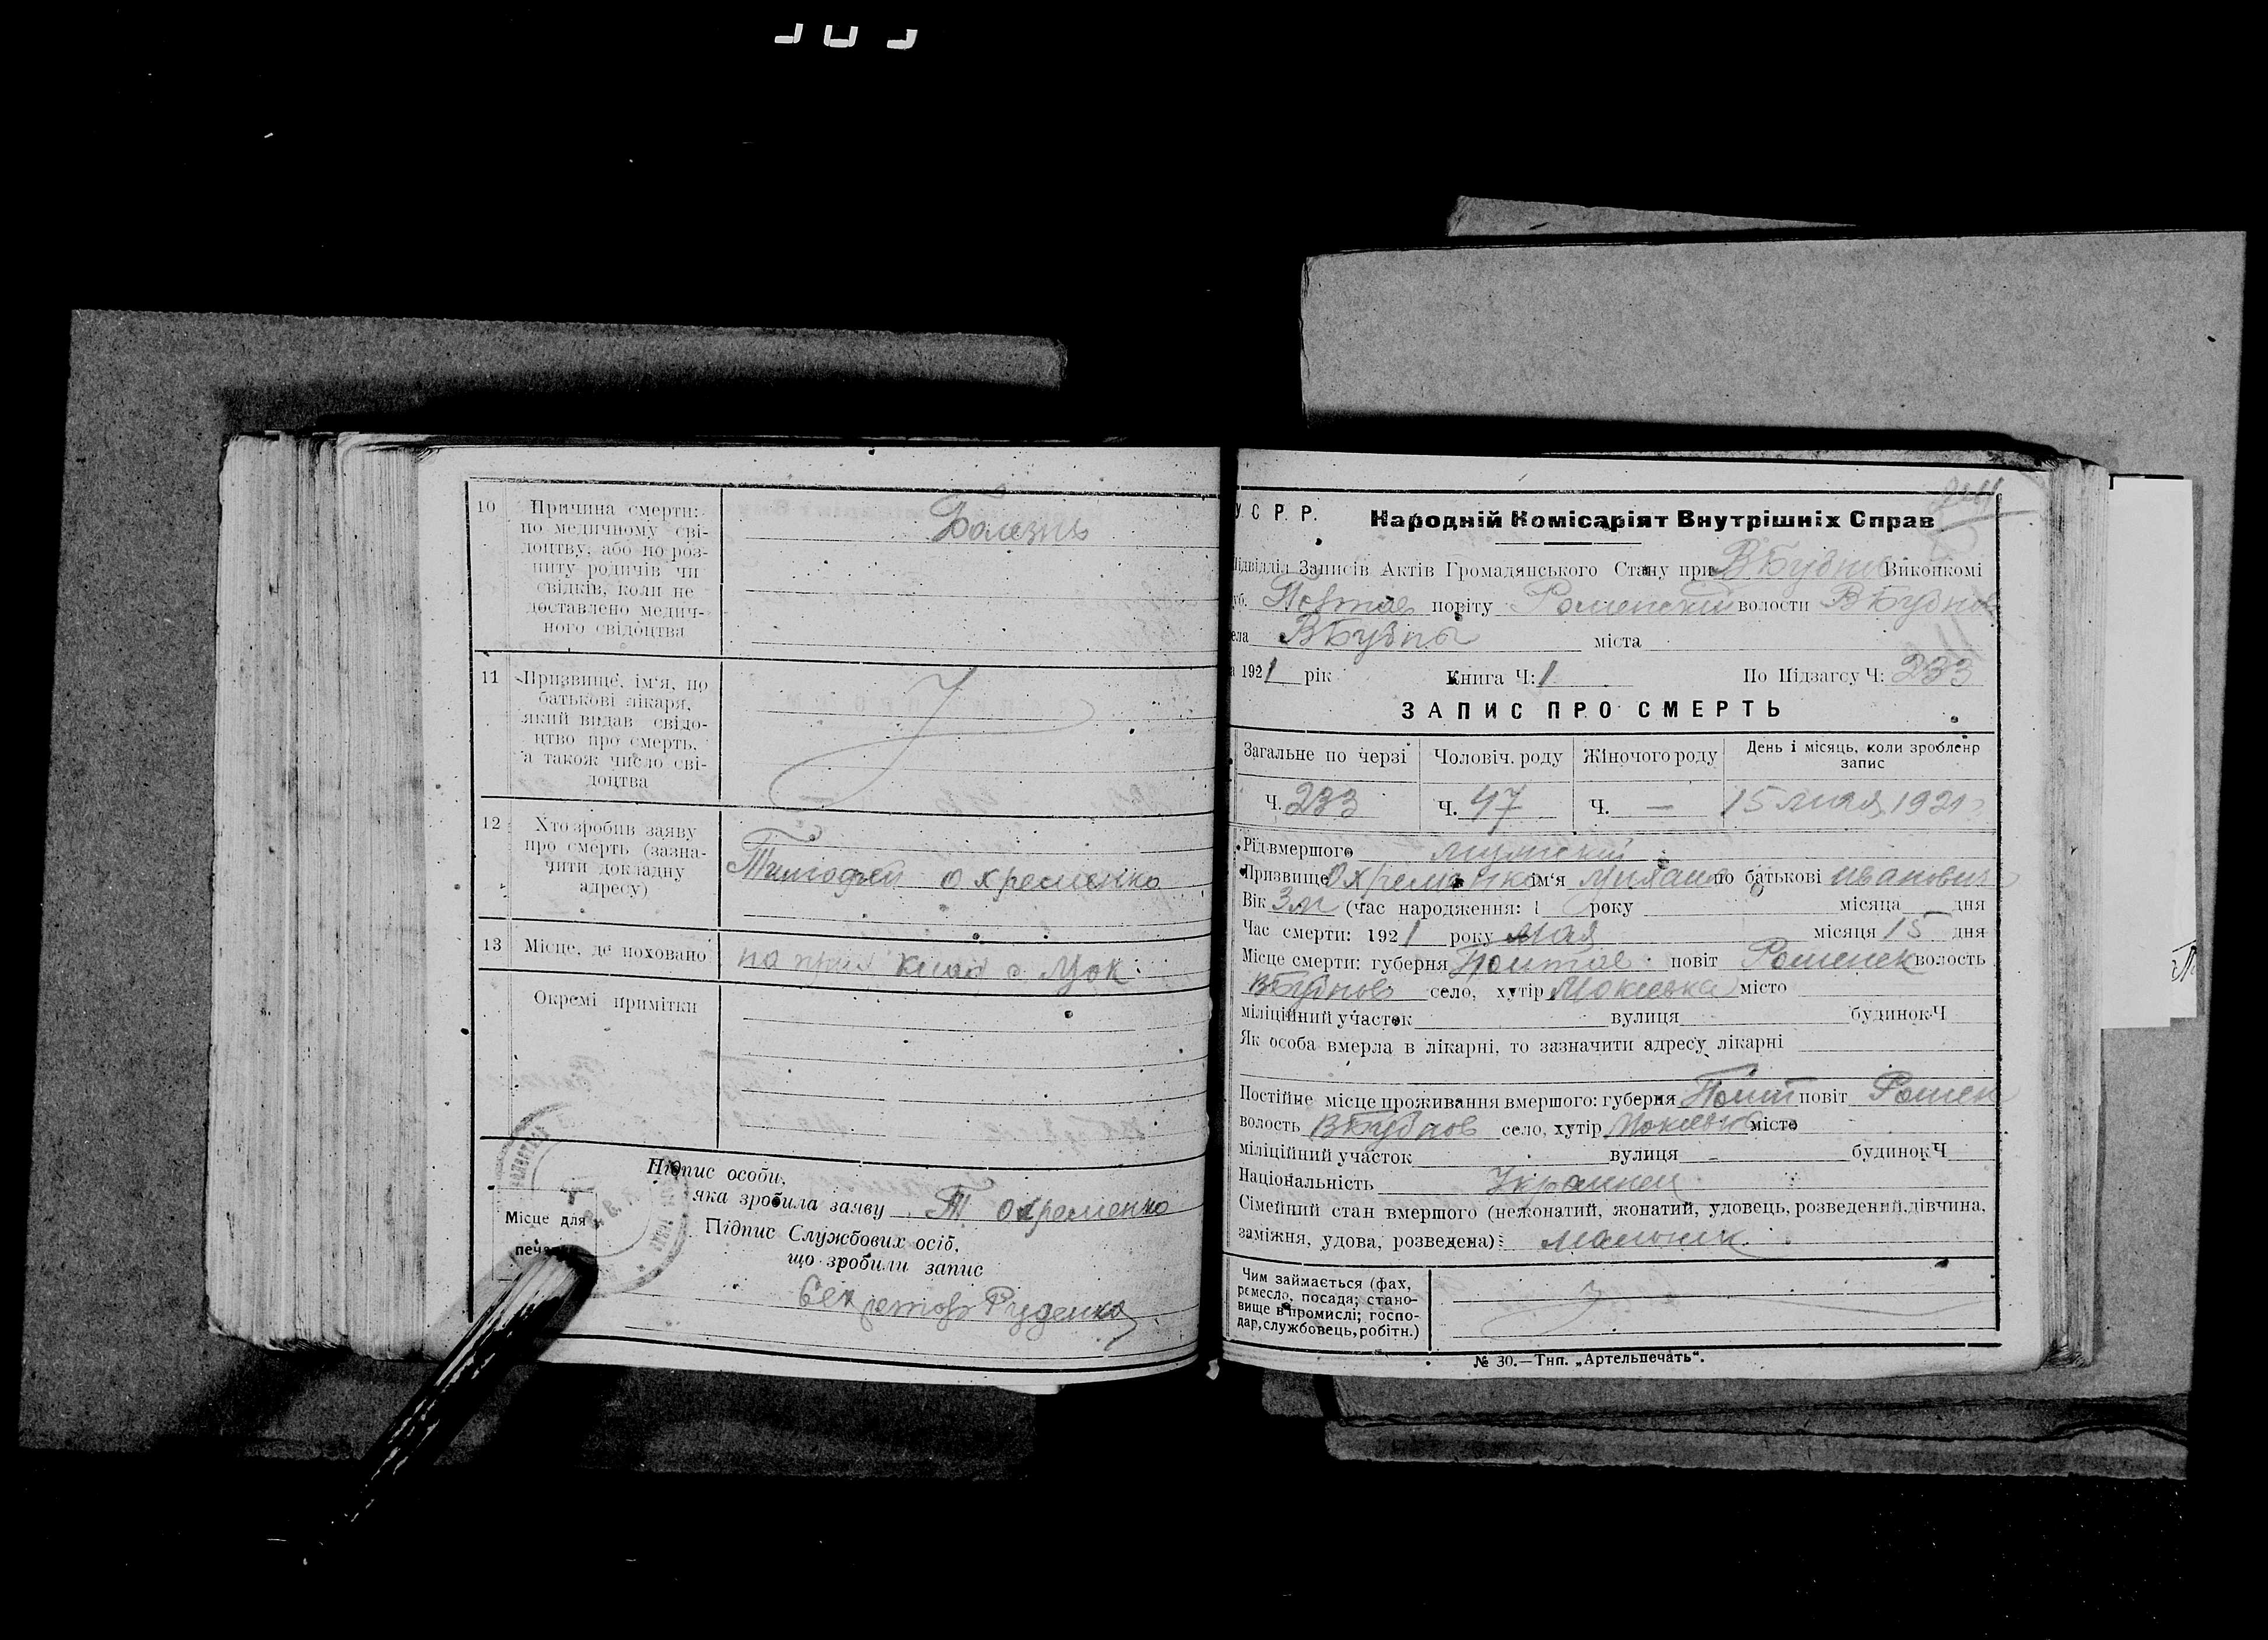 10 Причина смерти:
по медичному сві-
доцтву, або по роз-
питу родичів чи
свідків, коли не
доставлено медич-
ного свідоцтва
Болезнь
11 Призвище, ім'я, по
батькові лікаря,
який видав свідо-
цтво про смерть,
а також число сві-
доцтва
12 Хто зробив заяву
про смерть (зазна-
чити докладну
адресу)
Тимофей Охременко
13 Місце, де поховано
на клад
Окремі примітки
Підпис особи,
яка зробила заяву Т. Охременко
Місце для
печат
Підпис Службових осіб,
що зробили запис
Секретарь Руденко
У. С. Р. Р. Народній Комісаріят Внутрішніх Справ
Підвідділ Записів Актів Громадянського Стану при ВБубнов Виконкомі
губ. Полтав повіту Роменский волости ВБубнов
села ВБубны міста
а 1921 рік Книга Ч: 1 По Підзагсу Ч: 233
ЗАПИС ПРО СМЕРТЬ
Загальне по черзі Чоловіч. роду Жіночого роду День і місяць, коли зроблено запис
Ч. 233 Ч. 47 Ч. — 15 мая 1921
Рід вмершого мужский
Призвище Охременко ім'я Михаил по батькові Иванович
Вік 3 м (час народження: 1 року місяца дня
Час смерти: 1921 року мая місяця 15 дня
Місце смерти: губерня Полтав повіт Роменск волость
ВБубнов село, хутір Мокиевка місто
міліційний участок вулиця будинок Ч
Як особа вмерла в лікарні, то зазначити адресу лікарні
Постійне місце проживання вмершого: губерня Полт повіт Ромен
волость ВБубнов село, хутір Мокиевка місто
міліційний участок вулиця будинок Ч
Національність Украинец
Сімейний стан вмершого (нежонатий, жонатий, удовець, розведений, дівчина,
заміжня, удова, розведена):
Чим займається (фах,
ремесло, посада; стано-
вище в промислі; госпо-
дар, службовець, робітн.)
№ 30.—Тип. „Артельпечать".